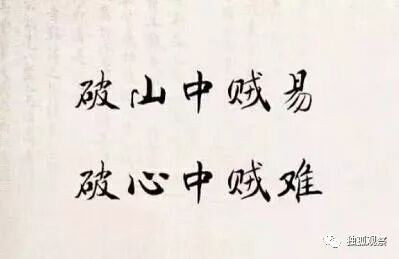 破山中贼易
破心中贼难
独孤观察